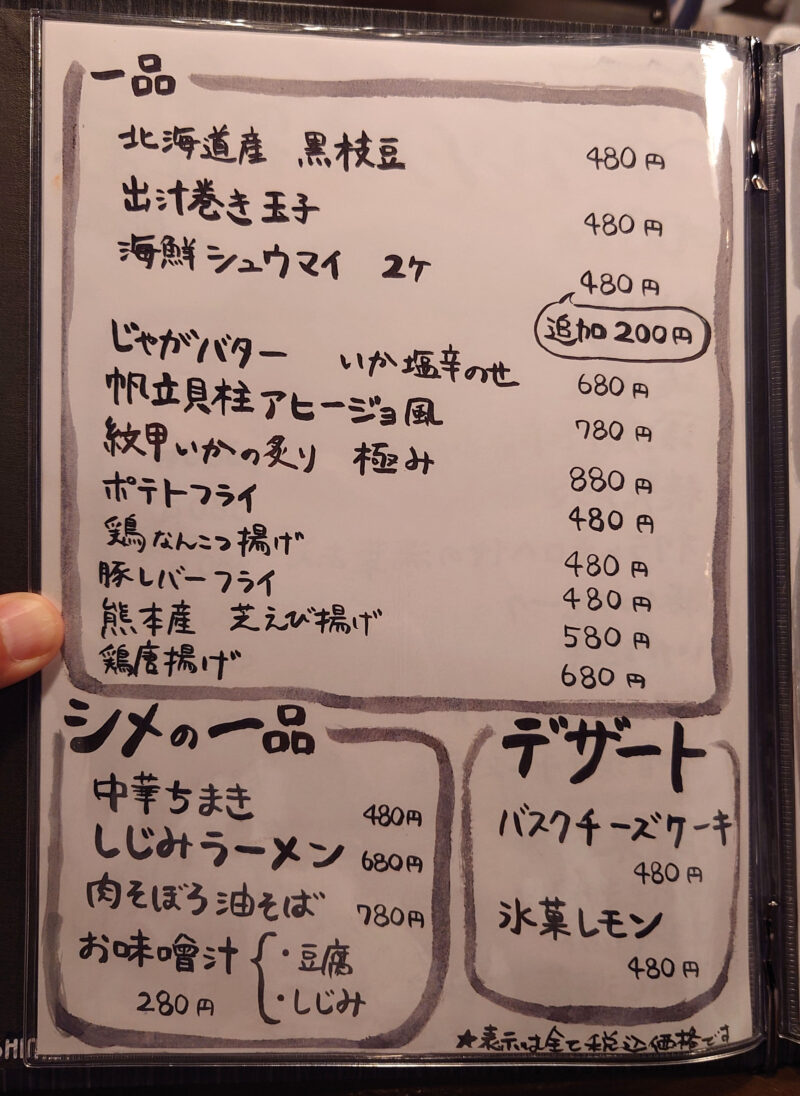 一品
北海道産 黒枝豆 480円
出汁巻き玉子 480円
海鮮シュウマイ 2ケ 480円
追加200円
じゃがバター いか塩辛のせ 680円
帆立貝柱アヒージョ風 780円
紋甲いかの炙り 極み 880円
ポテトフライ 480円
鶏なんこつ揚げ 480円
豚レバーフライ 480円
熊本産 芝えび揚げ 580円
鶏唐揚げ 680円
シメの一品
中華ちまき 480円
しじみラーメン 680円
肉そぼろ油そば 780円
お味噌汁 ・豆腐
280円 ・しじみ
デザート
バスクチーズケーキ
480円
氷菓レモン
480円
★表示は全て税込価格です